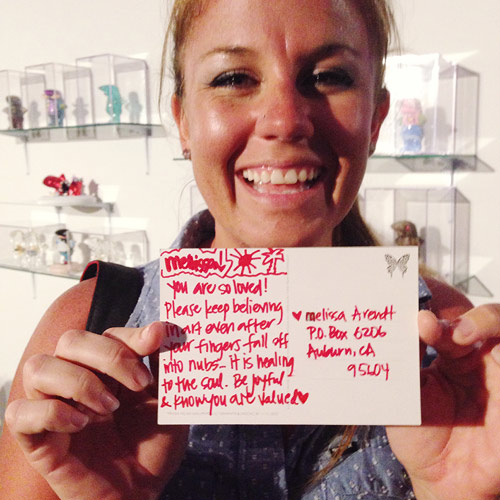 melissa!
you are so loved!
Please keep believing
in art even after
your fingers fall off
into nubs_ it is healing
to the soul. Be joyful
& know you are valued♥
♥ melissa Arendt
P.O. Box 6206
Auburn, CA
95604